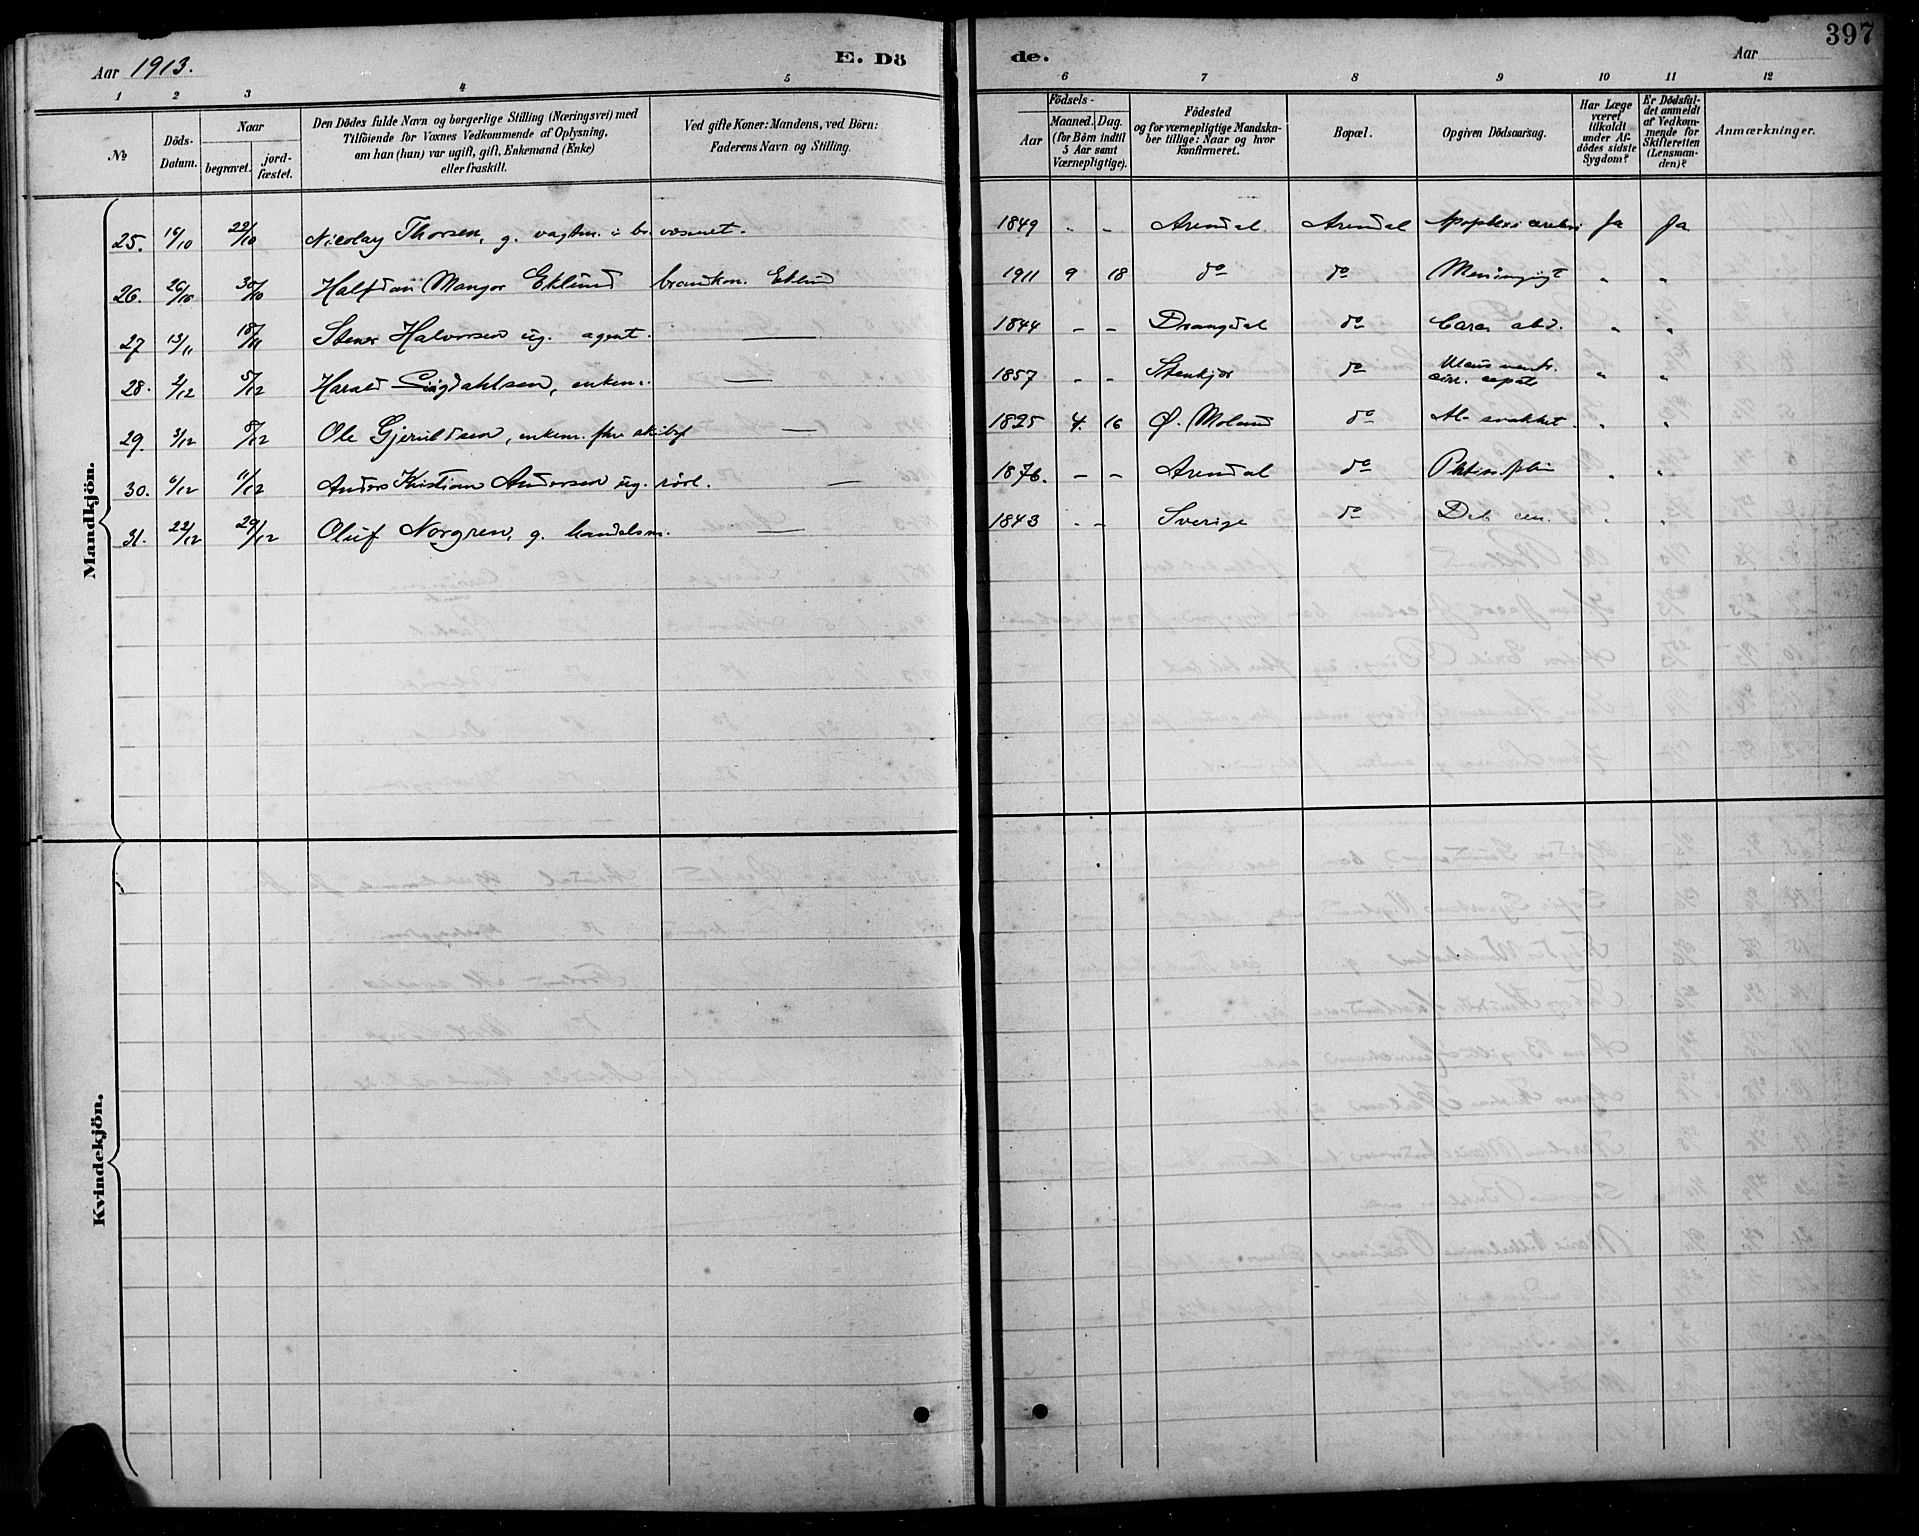 397
Aar 1913. E. Dö de. Aar
1 2 3 4 5 6 7 8 9 10 11 12
No
Döds-Datum.
Naar
begravet.
jordfæstet.
Den Dödes fulde Navn og borgerlige Stilling (Næringsvei) med
Tilföiende for Voxnes Vedkommende af Oplysning,
om han (hun) var ugift, gift, Enkemand (Enke)
eller fraskilt.
Ved gifte Koner: Mandens, ved Börn:
Faderens Navn og Stilling.
Födsels-
Aar
Maaned. Dag.
(for Börn indtil
5 Aar samt
Værnepligtige).
Födested
og for værnepligtige Mandska-
ber tillige: Naar og hvor
konfirmeret.
Bopæl.
Opgiven Dödsaarsag.
Har Læge
været
tilkaldt
under Af-
dödes sidste
Sygdom?
Er Dödsfal-
det anmeldt
af Vedkom-
mende for
Skifteretten
(Lensman-
den)?
Anmærkninger.
Mandkjön.
25. 16/10 22/10 Nicolay Thorsen, g. vagtm. i br. væsenet. 1849 " - Arendal Arendal Apoplexi cerebri Ja Ja
26. 26/10 30/10 Halfdan Mangor Eklund brandkon. Eklund 1911 9 18 do do Meningit " "
27 13/11 18/11 Stener Halvorsen ug. agent. — 1844 - - Drangdal do Carc. abd. " "
28. 2/12 5/12 Harald Sigdahlsen, enkem. — 1857 - - Stenkjær do Ulcus ventr. " "
cirr. hepat.
29. 3/12 8/12 Ole Gjerulfsen, enkem. fhv. skibsf — 1825 4. 16 Ø. Moland do Al. svakhet. " "
30. 6/12 11/12 Anders Kristian Andersen ug. rörl. — 1876. - - Arendal do " "
31. 22/12 29/12 Oluf Norgren, g. handelsm. — 1843 - - Sverige do Deb. sen. " "
Kvindekjön.